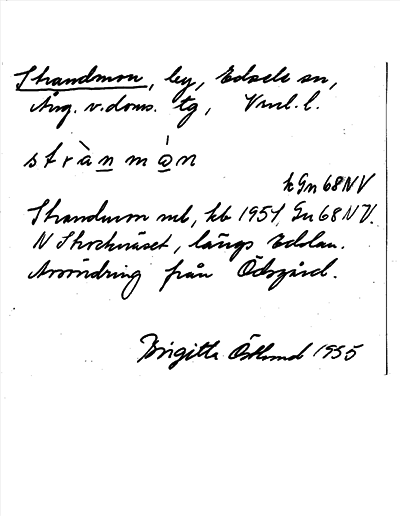 Strandmon, by, Edsele sn,
Ång. v. doms. tg, Vnl. l.
strànmȧn
k Gn 68 NV
Strandmon mb, kb 1951, Gn 68 NV.
N Stocknäset, längs Edslan.
Avsöndring från Ödsgård.
Birgitta Östlund 1955